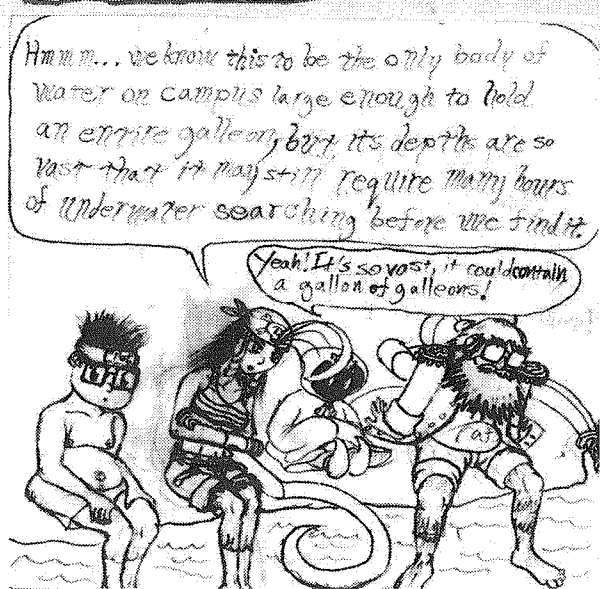 Hmmm... we know this to be the only body of
water on campus large enough to hold
an entire galleon, but its depths are so
vast that it may still require many hours
of underwater searching before we find it.
Yeah! It's so vast, it could contain
a gallon of galleons!